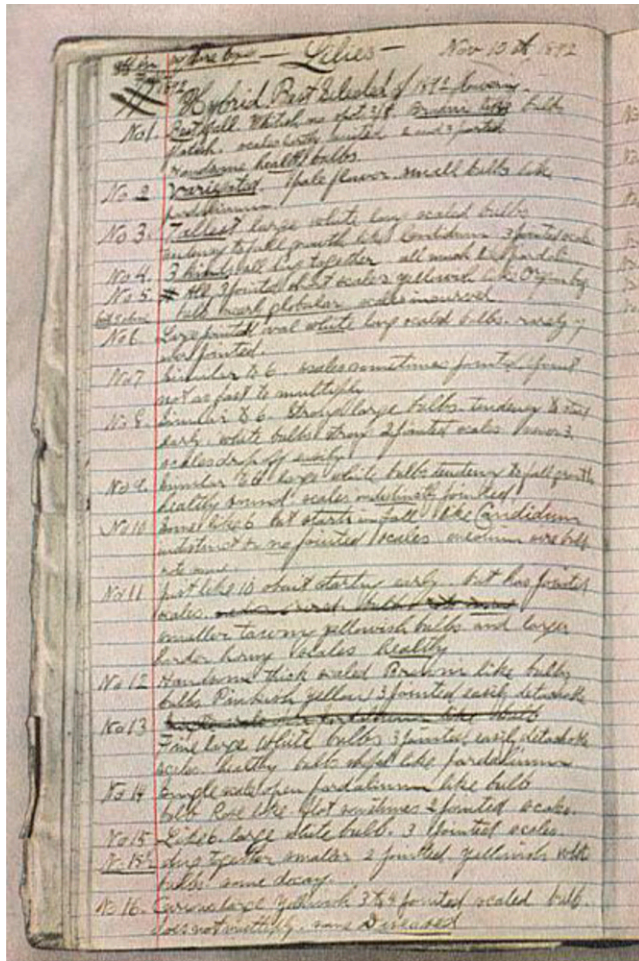 — Lilies — Nov 10th, 1892
1892
Hybrid Best Selected of 1892 flowering.
No 1. Best of all. Whitish no spot Brown like bulb
flatish. scales both jointed 2 and 3 jointed
Handsome healthy bulbs.
No 2 Variegated. small bulbs like
pardalinum.
No 3. Tallest large white long scaled bulbs
tendency to fall growth like Candidum 3 jointed scales
No 4. 3 kinds all dug together all much like pardal
No 5 All 2 jointed short scales yellowish like
bulb nearly globular scales incurved
No 6. Large pointed oval white long scaled bulbs. rarely if
ever jointed.
No 7 Similar to 6. scales sometimes jointed
not as fast to multiply
No 8. Similar to 6. Strong large bulbs. tendency to start
early. white bulbs strong 2 jointed scales never 3.
scales drop off easily
No 9. Similar to 6 large white bulbs tendency to fall growth
healthy round scales indistinctly jointed
No 10 Some like 6 but starts in fall like Candidum
indistinct or no jointed scales medium size bulb
No 11 just like 10 about starting early. but has jointed
scales.
smaller tawny yellowish bulbs and larger
harder horny scales healthy
No 12 Handsome thick scaled Brown like bulbs
bulbs Pinkish yellow 3 jointed easily detachable
No 13
Fine large white bulbs 3 jointed easily detachable
scales healthy bulbs like pardalinum
No 14 single scale open pardalinum like bulb
bulb Rose like flat sometimes 2 jointed scales.
No 15 Like 6. large white bulb. 3 jointed scales.
No 15½ dug together smaller 2 jointed yellowish white
bulbs some decay.
No 16. Curious large yellowish 3 to 4 jointed scaled bulb.
does not multiply. some Diseased